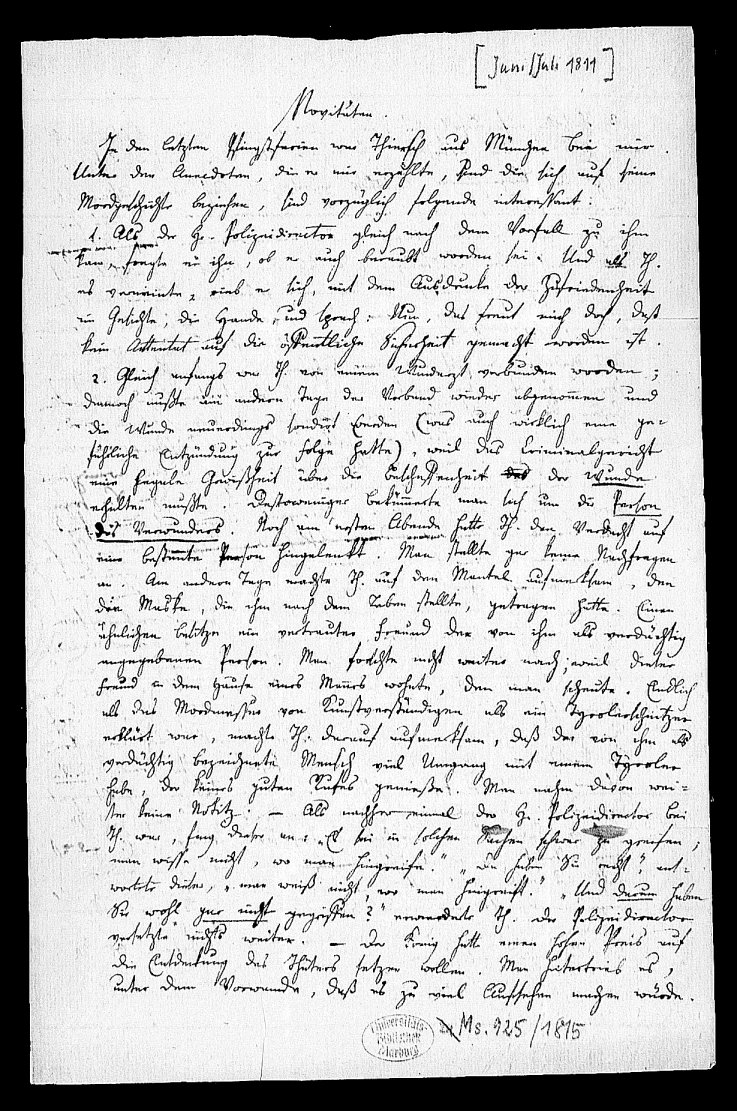 [Juni/Juli 1811]
Novitäten.
In den letzten Pfingstferien war Thiersch aus München bei mir.
Unter den Anecdoten, die er mir erzählte, sind die sich auf seine
Mordgeschichte beziehen, sind vorzüglich folgende interessant:
1. Als der Hr. Polizeidirector gleich nach dem Vorfall zu ihm
kam, fragte er ihn, ob er auch beraubt worden sei. Und als Th.
es verneinte, rieb er sich, mit dem Ausdrucke der Zufriedenheit
im Gesichte, die Hände, und sprach: Nun, das freut mich doch, daß
kein Attentat auf die öffentliche Sicherheit gemacht worden ist.
2. Gleich anfangs war Th. von einem Wundarzt verbunden worden;
dennoch mußte am andern Tage der Verband wieder abgenommen und
die Wunde neuerdings sondirt werden (was auch wirklich eine ge-
fährliche Entzündung zur Folge hatte), weil das Criminalgericht
eine Gewißheit über die Beschaffenheit des der Wunde
erhalten mußte. Destoweniger bekümmerte man sich um die Person
des Verwunders. Noch am ersten Abende hatte Th. den Verdacht auf
eine bestimmte Person hingelenkt. Man stellte gar keine Nachfragen
an. Am andern Tage machte Th. auf den Mantel aufmerksam, den
die Maske, die ihm nach dem Leben stellte, getragen hatte. Einen
ähnlichen besitze ein vertrauter Freund der von ihm als verdächtig
angegebenen Person. Man forschte nicht weiter nach, weil dieser
Freund in dem Hause eines Mannes wohnte, den man scheute. Endlich
als das Mordmesser von Kunstverständigen als ein Tyrolerschnitzer
erklärt war, machte Th. darauf aufmerksam, daß der von ihm als
verdächtig bezeichnete Mensch viel Umgang mit einem Tyroler
habe, der keines guten Rufes genieße. Man nahm davon wei-
ter keine Notitz. – Als nachher einmal der Hr. Polizeidirector bei
Th. war, fing dieser an: „Es sei in solchen Sachen schwer zu greifen;
man wisse nicht, wo man hingreife." „Da haben Sie recht", ant-
wortete dieser, „man weiß nicht, wo man hingreift." „Und darum haben
Sie wohl gar nicht gegriffen?" erwiederte Th. Der Polizeidirector
versetzte nichts weiter. – Der König hatte einen hohen Preis auf
die Entdeckung des Thäters setzen wollen. Man hintertrieb es,
unter dem Vorwande, daß es zu viel Aufsehen machen würde.
Universitäts-
Bibliothek
Marburg
Ms. 925/1815